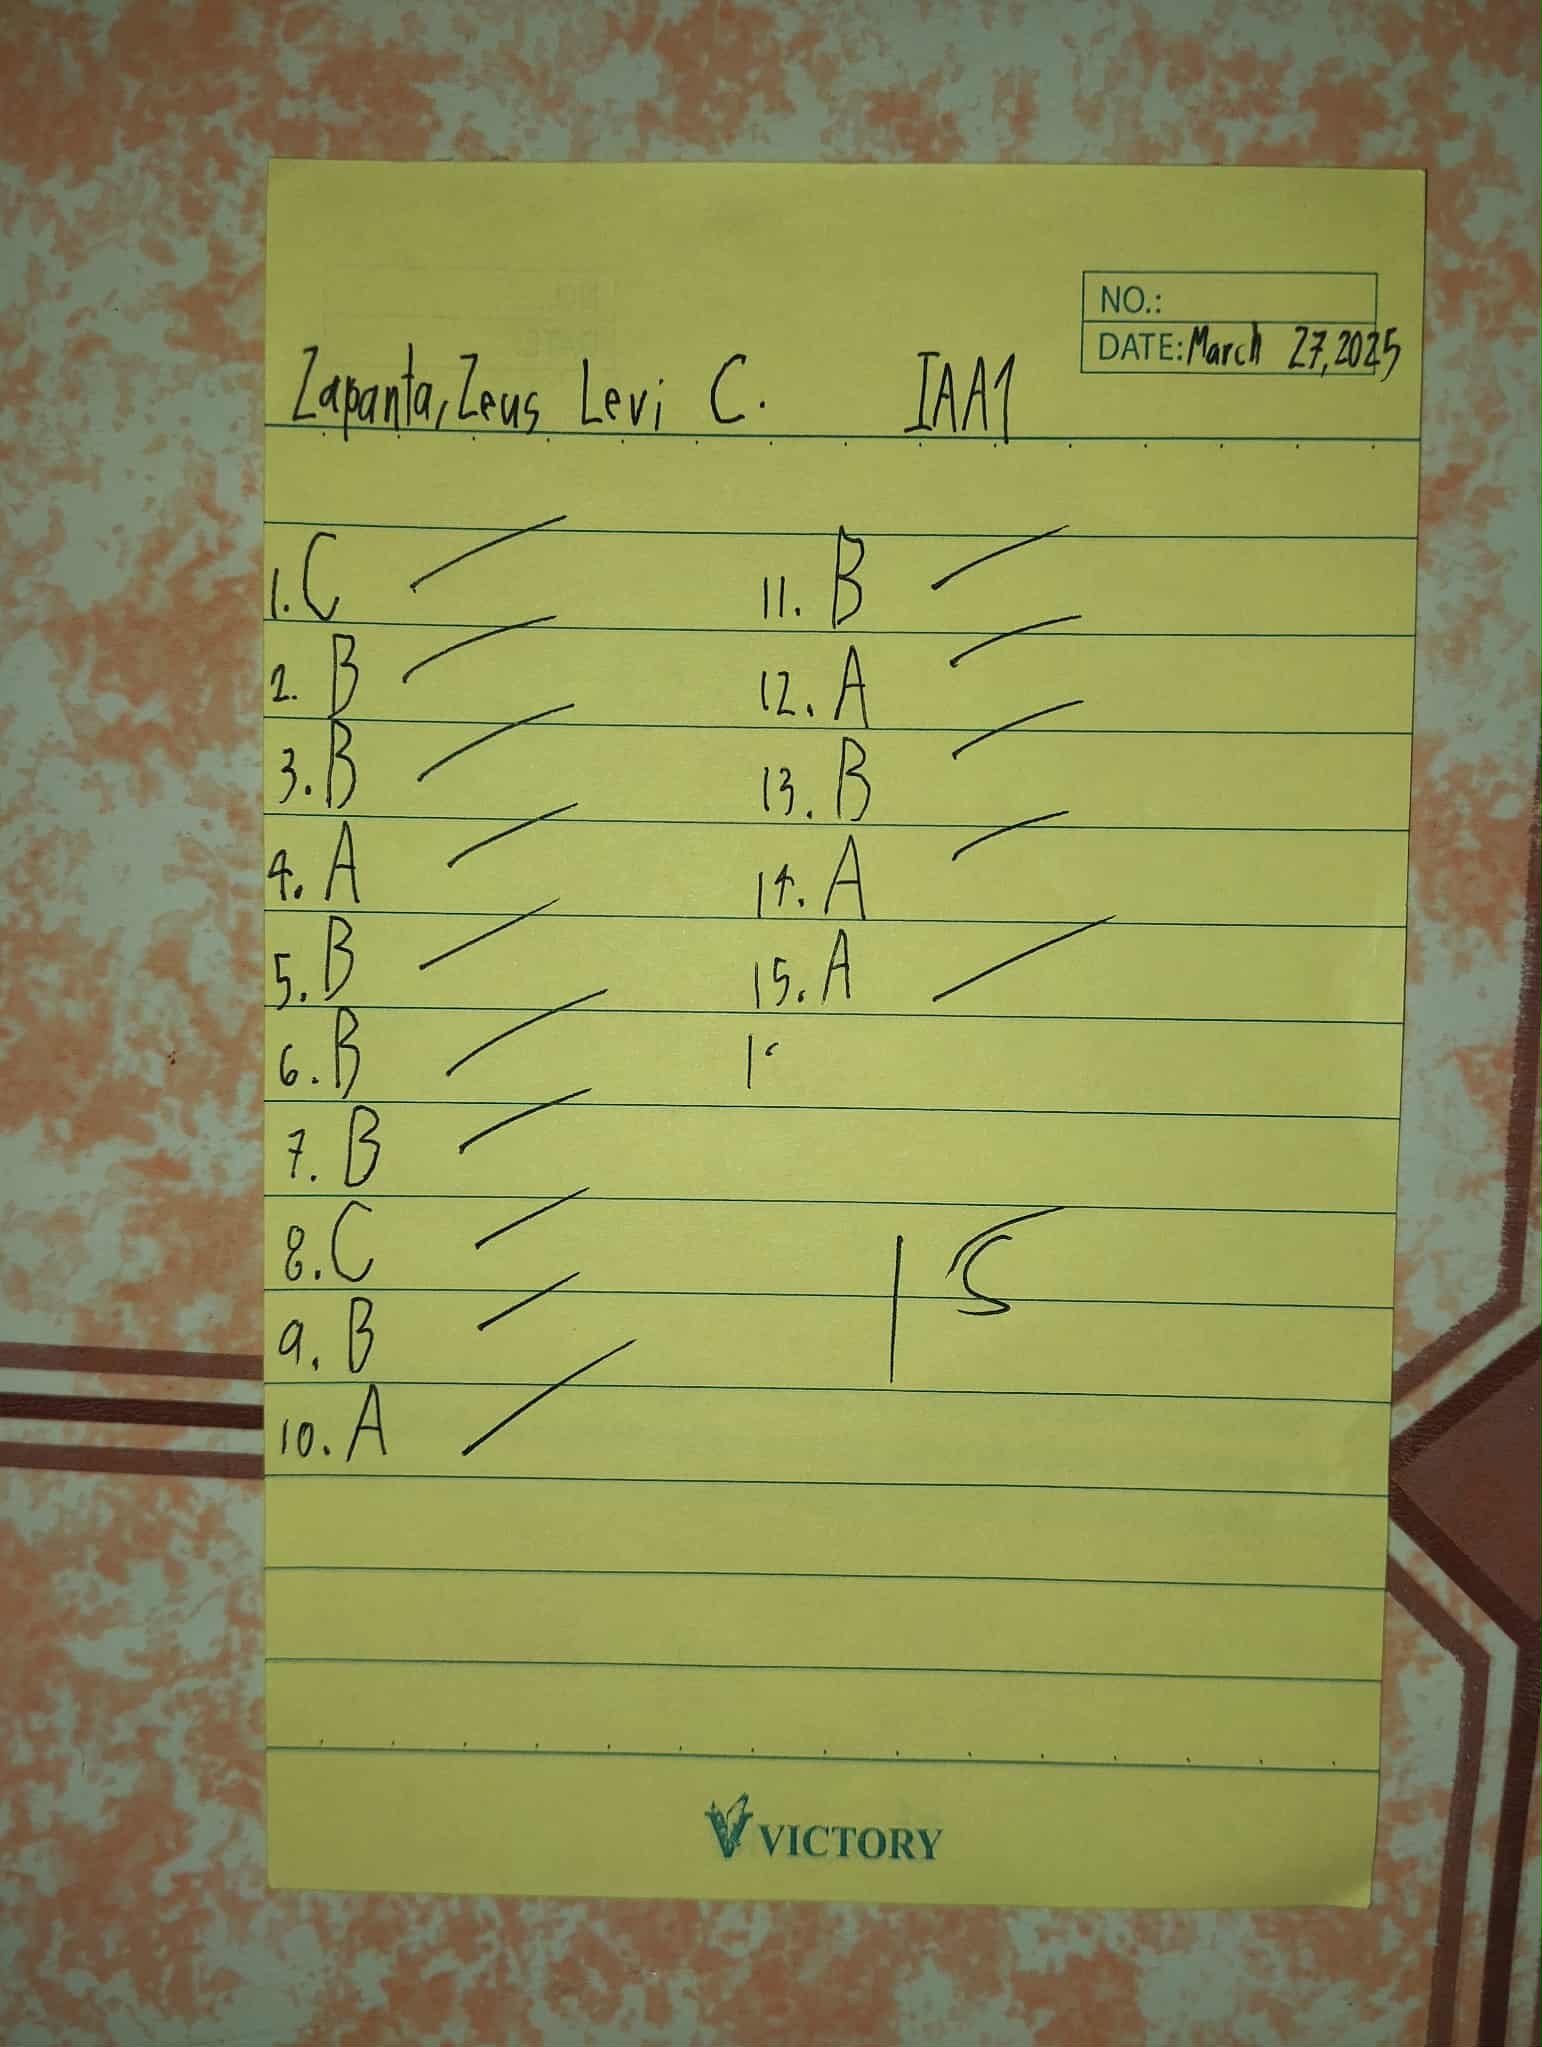 NO.:
DATE: March 27, 2025
Zapanta, Zeus Levi C. IAA1
1. C
2. B
3. B
4. A
5. B
6. B
7. B
8. C
9. B
10. A
11. B
12. A
13. B
14. A
15. A
15
VICTORY